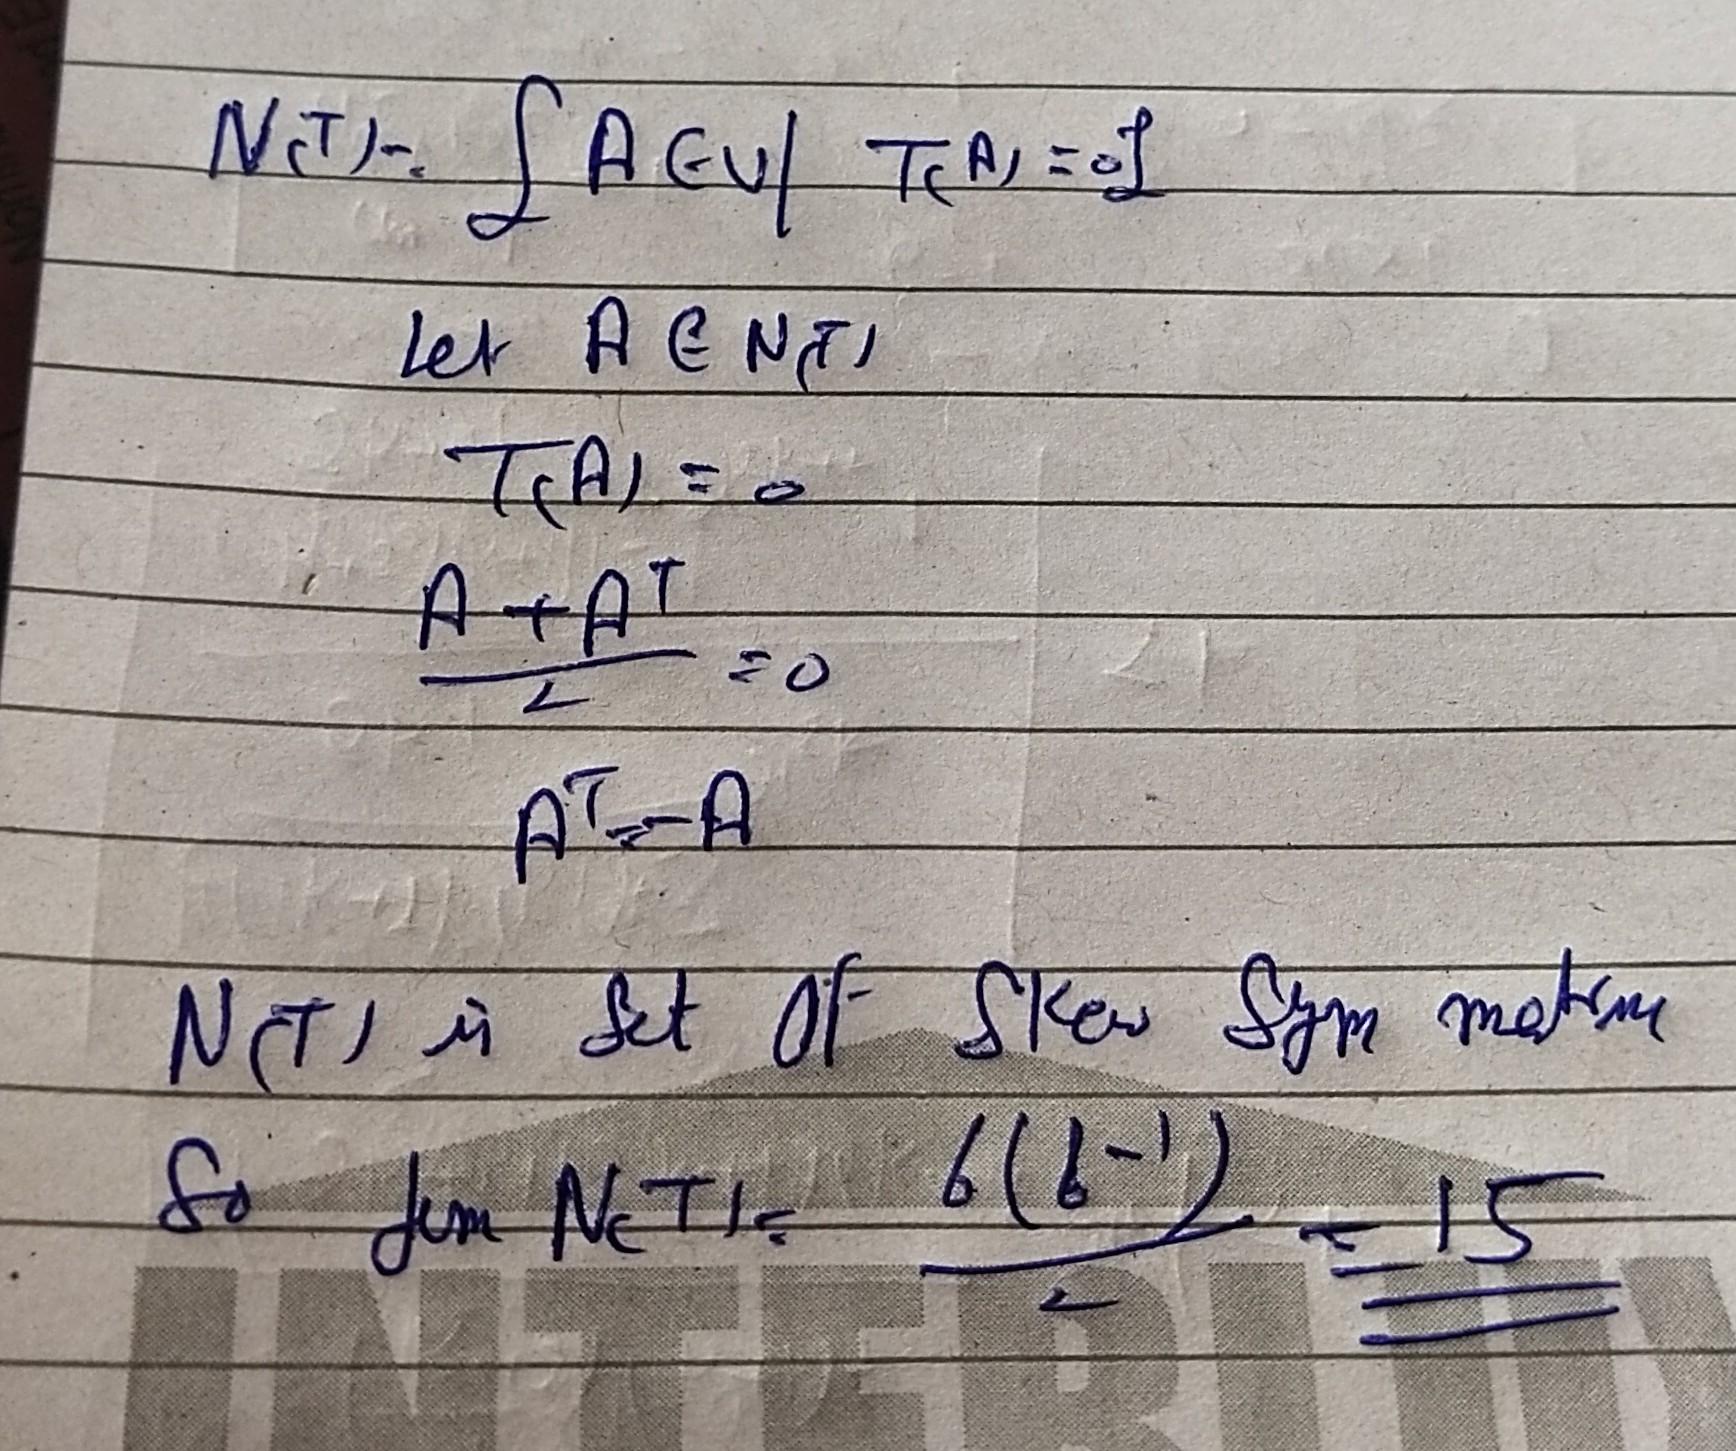 N(T) = { A ∈ V | T(A) = 0}
Let A ∈ N(T)
T(A) = 0
A + A^T
/ 2 = 0
A^T = -A
N(T) is Set Of Skew Sym matrix
So dim N(T) = 6(6-1) / 2 = 15